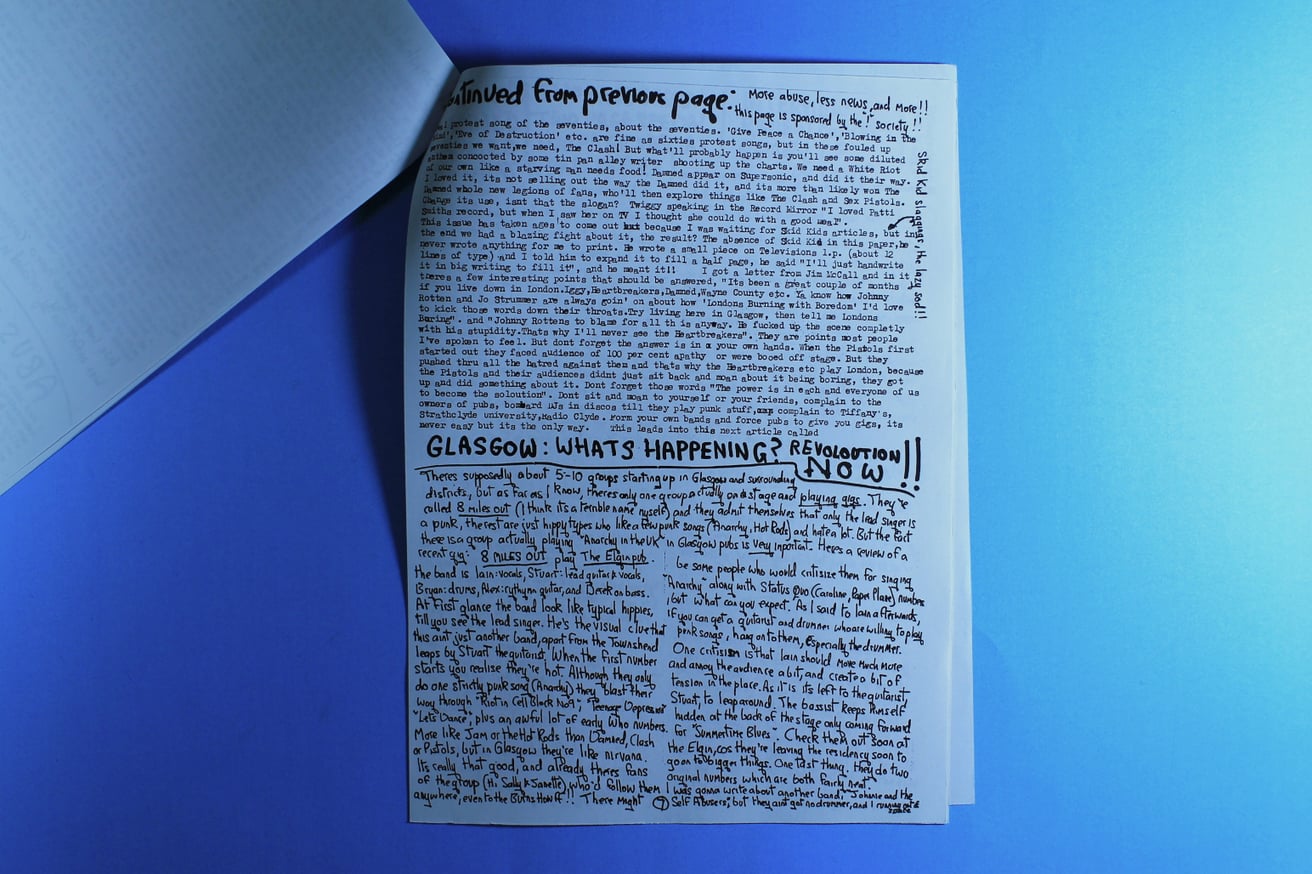 ntinued from previous page:
More abuse, less news, and more!!
this page is sponsored by the "!" society!!
l protest song of the seventies, about the seventies. 'Give Peace a Chance','Blowing in the
ind','Eve of Destruction' etc. are fine as sixties protest songs, but in these fouled up
seventies we want,we need, The Clash! But what'll probably happen is you'll see some diluted
anthem concocted by some tin pan alley writer shooting up the charts. We need a White Riot
of our own like a starving man needs food! Damned appear on Supersonic, and did it their way.
I loved it, its not selling out the way the Damned did it, and its more than likely won The
Damned whole new legions of fans, who'll then explore things like The Clash and Sex Pistols.
Change its use, isnt that the slogan? Twiggy speaking in the Record Mirror "I loved Patti
Smiths record, but when I saw her on TV I thought she could do with a good meal".
This issue has taken ages to come out because I was waiting for Skid Kids articles, but in
the end we had a blazing fight about it, the result? The absence of Skid Kid in this paper,he
never wrote anything for me to print. He wrote a small piece on Televisions l.p. (about 12
lines of type) and I told him to expand it to fill a half page, he said "I'll just handwrite
it in big writing to fill it", and he meant it!! I got a letter from Jim McCall and in it
theres a few interesting points that should be answered, "Its been a great couple of months
if you live down in London.Iggy,Heartbreakers,Damned,Wayne County etc. Ya know how Johnny
Rotten and Jo Strummer are always goin' on about how 'Londons Burning with Boredom' I'd love
to kick those words down their throats.Try living here in Glasgow, then tell me Londons
Boring". and "Johnny Rottens to blame for all th is anyway. He fucked up the scene completly
with his stupidity.Thats why I'll never see the Heartbreakers". They are points most people
I've spoken to feel. But dont forget the answer is in your own hands. When the Pistols first
started out they faced audience of 100 per cent apathy or were booed off stage. But they
pushed thru all the hatred against them and thats why the Heartbreakers etc play London, because
the Pistols and their audiences didnt just sit back and moan about it being boring, they got
up and did something about it. Dont forget those words "The power is in each and everyone of us
to become the soloution". Dont sit and moan to yourself or your friends, complain to the
owners of pubs, bombard DJs in discos till they play punk stuff, complain to Tiffany's,
Strathclyde university,Radio Clyde. Form your own bands and force pubs to give you gigs, its
never easy but its the only way. This leads into this next article called
Skid Kid slaggings, the lazy sod!!
GLASGOW: WHATS HAPPENING? REVOLOUTION
NOW!!
Theres supposedly about 5-10 groups starting up in Glasgow and surrounding
districts, but as far as I know, theres only one group actually on a stage and playing gigs. They're
called 8 miles out (I think its a terrible name myself) and they admit themselves that only the lead singer is
a punk, the rest are just hippy types who like a few punk songs (Anarchy, Hot Rods) and hate a lot. But the fact
there is a group actually playing "Anarchy in the UK" in Glasgow pubs is very important. Heres a review of a
recent gig: 8 MILES OUT play The Elgin pub.
the band is Iain:vocals, Stuart:lead guitar & vocals,
Bryan:drums, Alex:rythym guitar, and Derek on bass.
At first glance the band look like typical hippies,
till you see the lead singer. He's the visual clue that
this aint just another band, apart from the Townshend
leaps by Stuart the guitarist. When the first number
starts you realise they're hot. Although they only
do one strictly punk song (Anarchy) they blast their
way through "Riot in Cell Block No9", "Teenage Depression"
"Let's Dance", plus an awful lot of early Who numbers.
More like Jam or the Hot Rods than Damned, Clash
or Pistols, but in Glasgow they're like nirvana.
Its really that good, and already theres fans
of the group (Hi Sally & Janette) who'd follow them
anywhere, even to the Burns Howff!! There might
be some people who would critisize them for singing
"Anarchy" along with Status Quo (Caroline, Paper Plane) numbers
, but what can you expect. As I said to Iain afterwards,
if you can get a guitarist and drummer who are willing to play
punk songs, hang on to them, especially the drummer.
One critisism is that Iain should move much more
and annoy the audience a bit, and create a bit of
tension in the place. As it is its left to the guitarist,
Stuart, to leap around. The bassist keeps himself
hidden at the back of the stage only coming forward
for "Summertime Blues". Check them out soon at
the Elgin, cos they're leaving the residency soon to
go on to bigger things. One last thing. they do two
original numbers which are both fairly neat.
I was gonna write about another band, "Johnie and the
Self Abusers", but they aint got no drummer, and I running out of
space
7